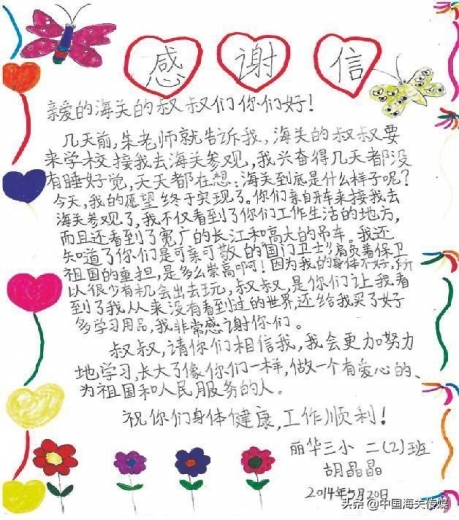 感谢信
亲爱的海关的叔叔们你们好！
几天前，朱老师就告诉我，海关的叔叔要
来学校接我去海关参观，我兴奋得几天都没
有睡好觉，天天都在想：海关到底是什么样子呢？
今天，我的愿望终于实现了。你们亲自开车来接我去
海关参观了，我不仅看到了你们工作生活的地方，
而且还看到了宽广的长江和高大的吊车。我还
知道了你们是可亲可敬的国门卫士，肩负着保卫
祖国的重担，是多么崇高啊！因为我的身体不好，所
以很少有机会出去玩，叔叔，是你们让我看
到了我从来没有看到过的世界，还给我买了好
多学习用品，我非常感谢你们。
叔叔，请你们相信我，我会更加努力
地学习，长大了像你们一样，做一个有爱心的、
为祖国和人民服务的人。
祝你们身体健康，工作顺利！
丽华三小 二（2）班
胡晶晶
2014年5月20日
头条@中国海关传媒